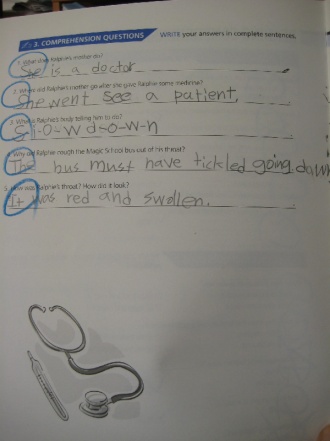 3. COMPREHENSION QUESTIONS WRITE your answers in complete sentences.
1. What does Ralphie's mother do?
She is a doctor
2. Where did Ralphie's mother go after she gave Ralphie some medicine?
She went see a patient.
3. What is Ralphie's body telling him to do?
S-l-o-w d-o-w-n
4. Why did Ralphie cough the Magic School bus out of his throat?
The bus must have tickled going down
5. How was Ralphie's throat? How did it look?
It was red and swollen.